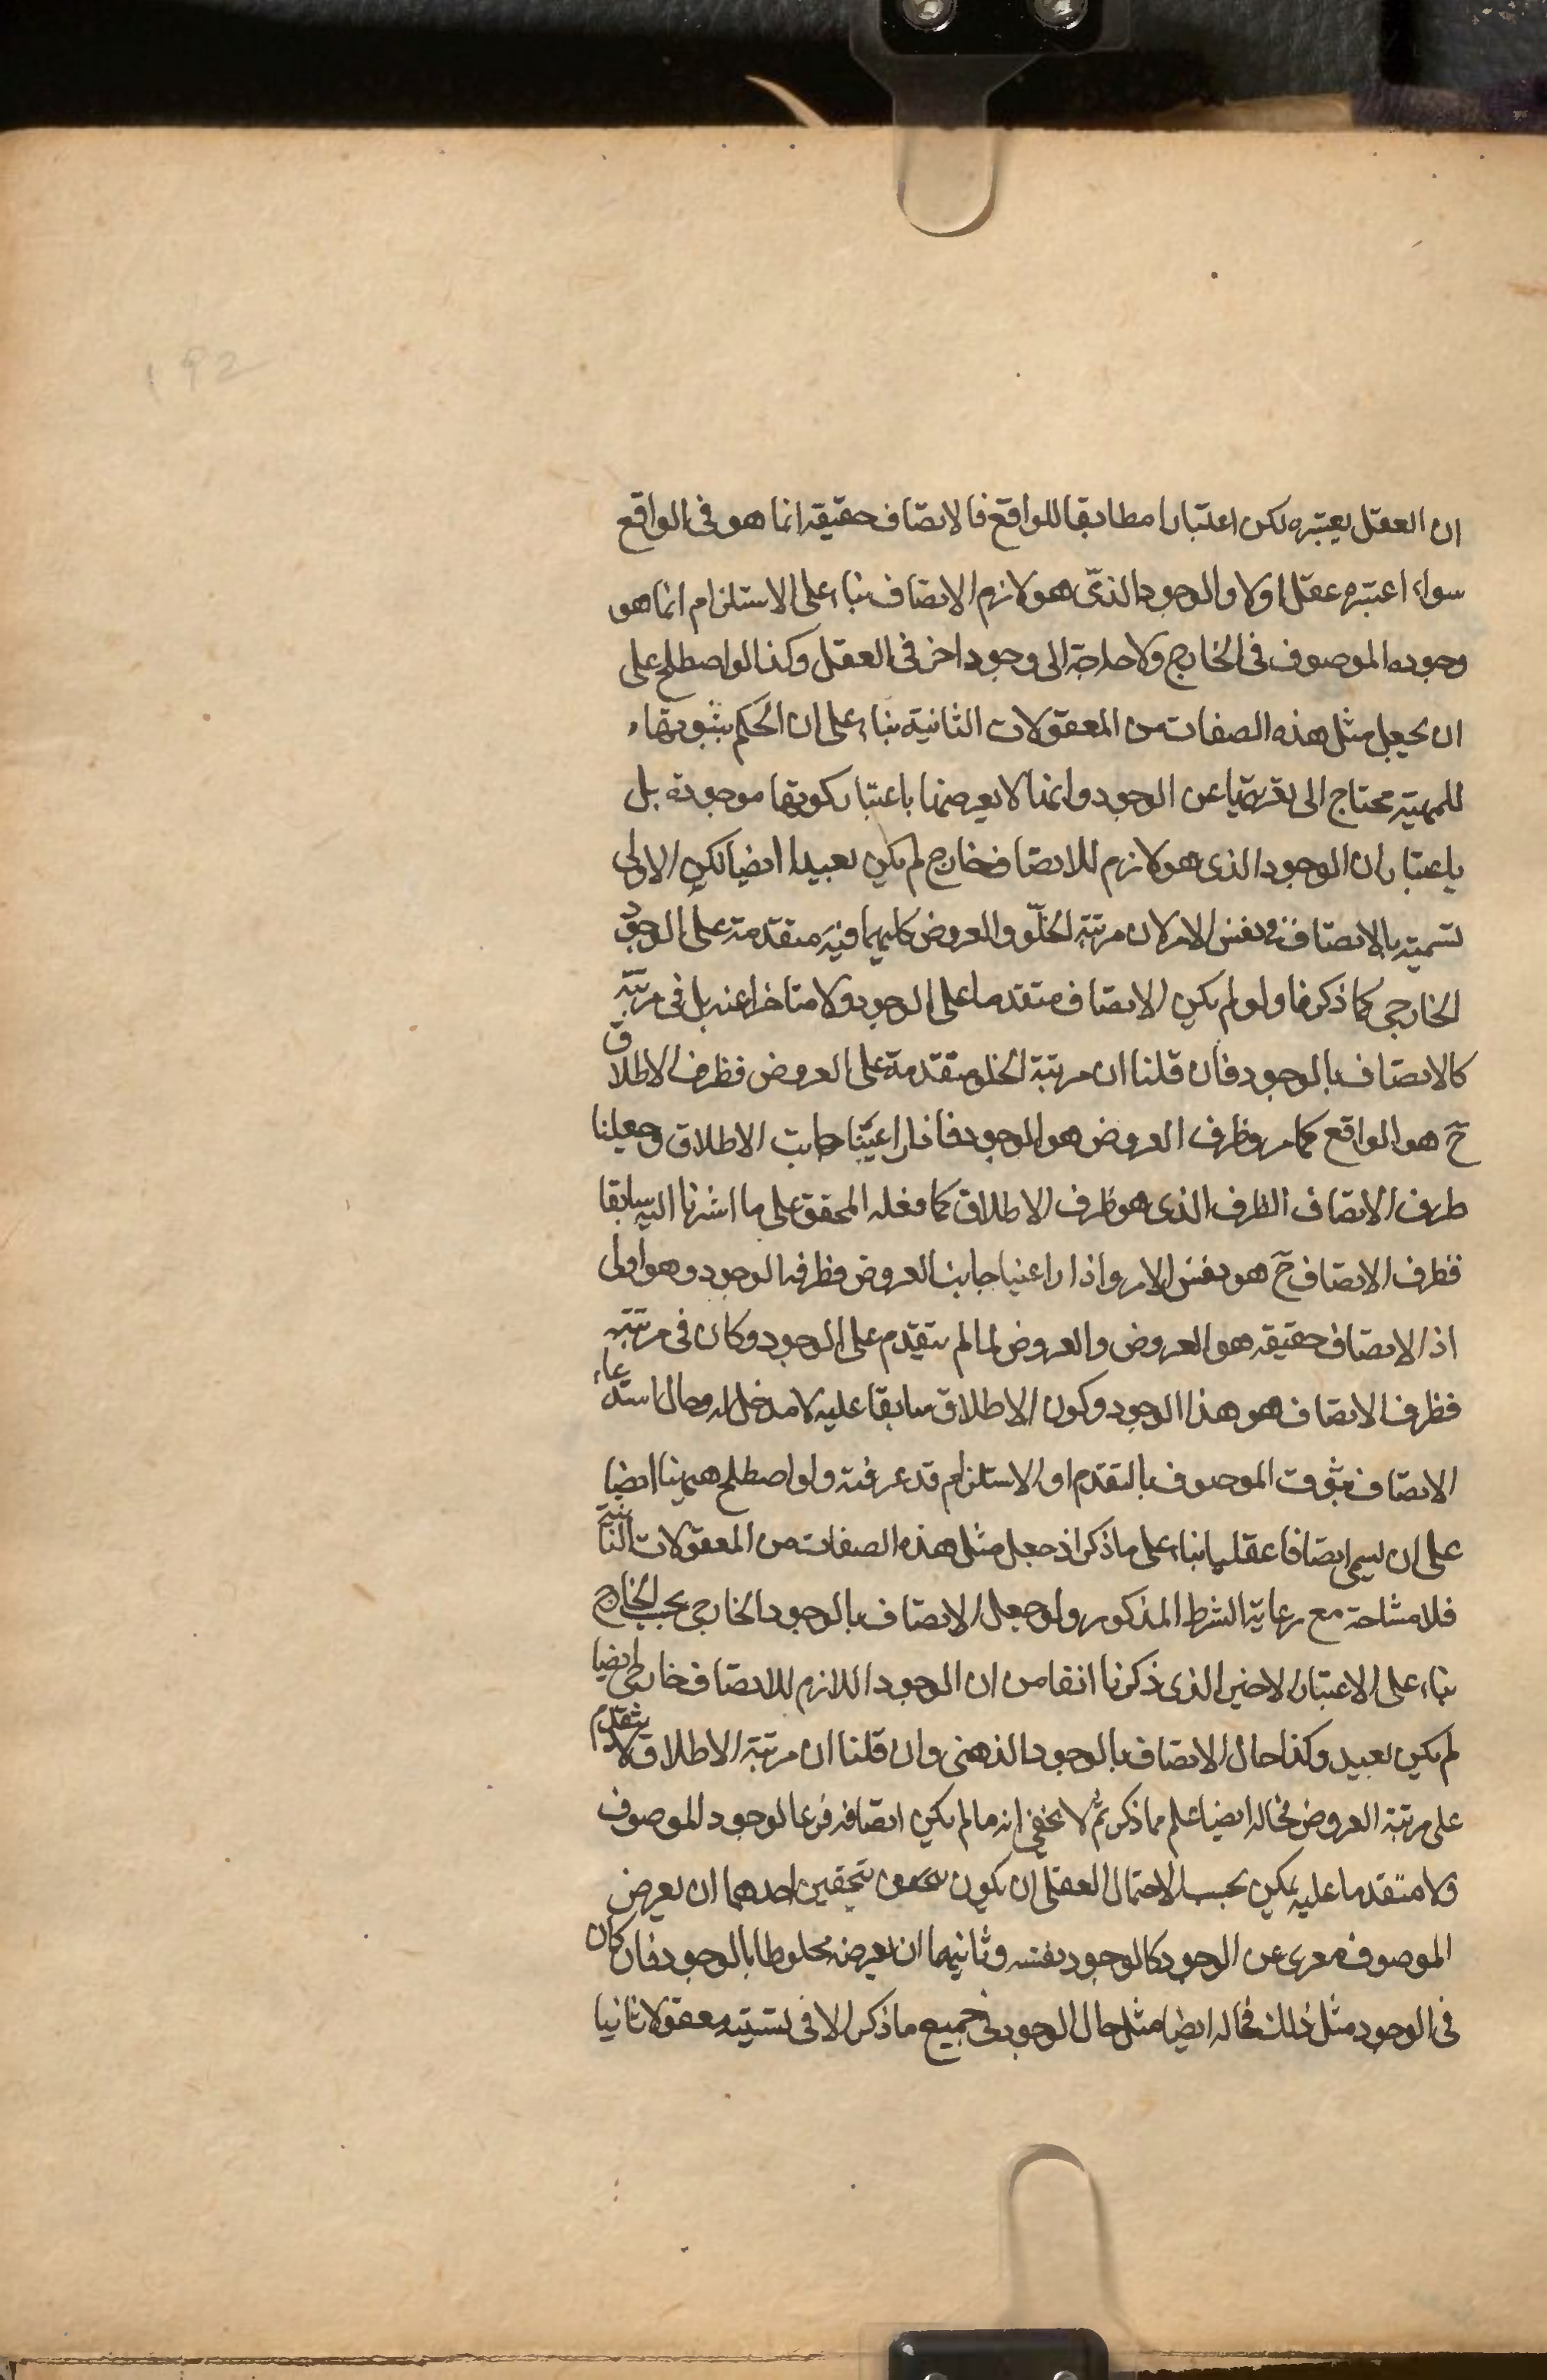 192
ان العقل يعتبره لكن اعتبارا مطابقا للواقع فالاتصاف حقيقة انما هو فى الواقع
سواء اعتبره عقل اولا والوجود الذى هو لازم الاتصاف بناء على الاستلزام انما هو
وجود الموصوف فى الخارج ولا حاجة الى وجود اخر فى العقل وكذا لو اصطلح على
ان يجعل مثل هذه الصفات من المعقولات الثانية بناء على ان الحكم بثبوتها
للمهية محتاج الى تعريتها عن الوجود وانها لا يعرضها باعتبار كونها موجودة بل
باعتبار ان الوجود الذى هو لازم للاتصاف خارج لم يكن بعيدا ايضا لكن الاولى
تسميته بالاتصاف فى نفس الامر لان مرتبة الخلو والعروض كليهما فيه متقدمة على الوجود
الخارجى كما ذكرنا ولو لم يكن الاتصاف متقدما على الوجود ولا متاخرا عنه بل فى مرتبته
كالاتصاف بالوجود فان قلنا ان مرتبة الخلو متقدمة على العروض فظرف الاطلاق
ح هو الواقع كما مر وظرف العروض هو الوجود فاذا راعينا جانب الاطلاق وجعلنا
ظرف الاتصاف الظرف الذى هو ظرف الاطلاق كما فعله المحقق على ما اشرنا اليه سابقا
فظرف الاتصاف ح هو نفس الامر واذا راعينا جانب العروض فظرفه الوجود وهو اولى
اذ الاتصاف حقيقة هو العروض والعروض لما لم يتقدم على الوجود وكان فى مرتبته
فظرف الاتصاف هو هذا الوجود وكون الاطلاق سابقا عليه لا مدخل له وحال استدعاء
الاتصاف ثبوت الموصوف بالتقدم او الاستلزام قد عرفته ولو اصطلح ههنا ايضا
على ان يسمى اتصافا عقليا بناء على ما ذكر اذ جعل مثل هذه الصفات من المعقولات الثانية
فلا مشاحة مع رعاية الشرط المذكور ولو جعل الاتصاف بالوجود الخارجى بحسب الخارج
بناء على الاعتبار الاخير الذى ذكرنا انفا من ان الوجود اللازم للاتصاف خارجى ايضا
لم يكن بعيد وكذا حال الاتصاف بالوجود الذهنى وان قلنا ان مرتبة الاطلاق لا يتقدم
على مرتبة العروض فحاله ايضا علم مما ذكر ثم لا يخفى انه ما لم يكن اتصافه فرعا لوجود الموصوف
ولا متقدما عليه يمكن بحسب الاحتمال العقلى ان يكون على نحوين احدهما ان يعرض
الموصوف معرى عن الوجود كالوجود نفسه وثانيهما ان يعرضه مخلوطا بالوجود فان كان
فى الوجود مثل ذلك فحاله ايضا مثل حال الوجود فى جميع ما ذكر الا فى تسميته معقولا ثانيا